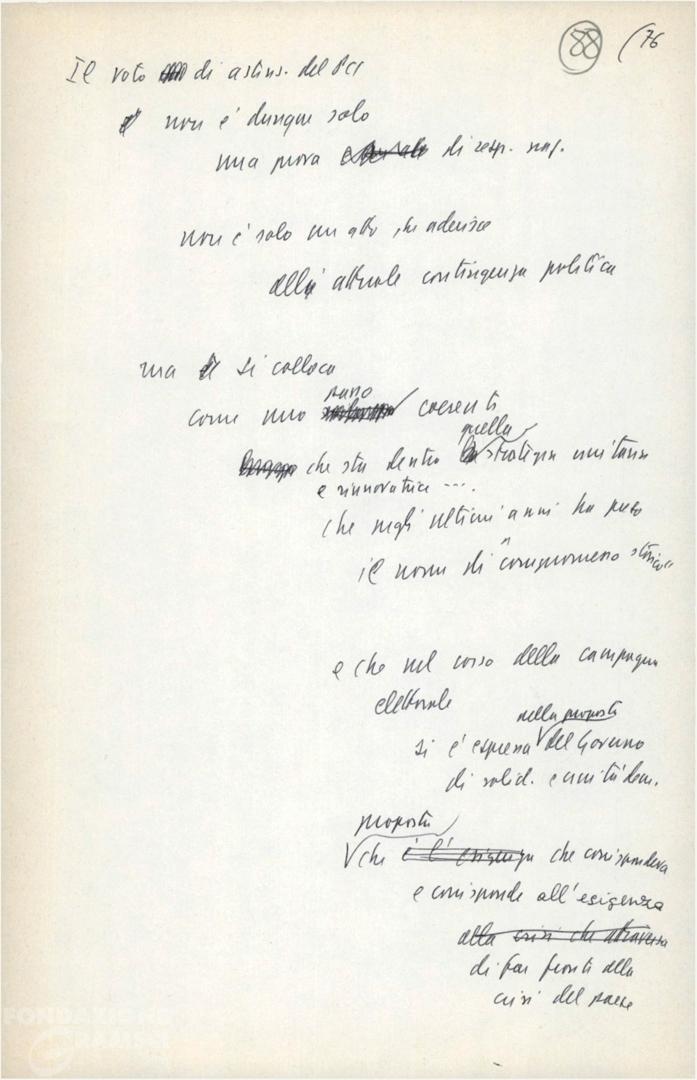 88 (76
Il voto di astens. del PCI
non è dunque solo
una prova di resp. naz.
non è solo un atto che aderisce
alla attuale contingenza politica
ma si colloca
passo
come uno coerente
quella
che sta dentro strategia unitaria
e rinnovatrice ....
che negli ultimi anni ha preso
il nome di "compromesso storico"
e che nel corso della campagna
elettorale
nella proposta
si è espressa del Governo
di solid. e unità dem.
proposta
che è l'esigenza che corrispondeva
e corrisponde all'esigenza
alla crisi che attraversa
di far fronte alla
crisi del paese
FONDAZIONE
GRAMSCI